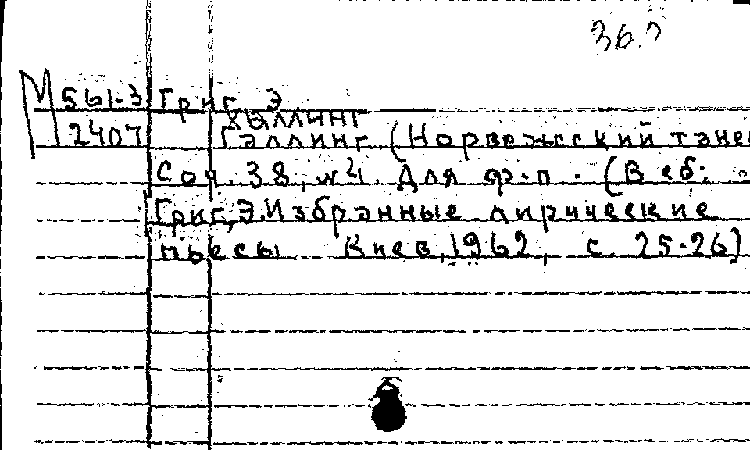 36.
М 561-3 Григ Э
Хыллинг
2407 Гэллинг (Норвежский танец
Соч. 38, №4. Для ф-п. (В сб:
Григ, Э. Избранные лирические
пьесы Киев, 1962, с. 25-26)